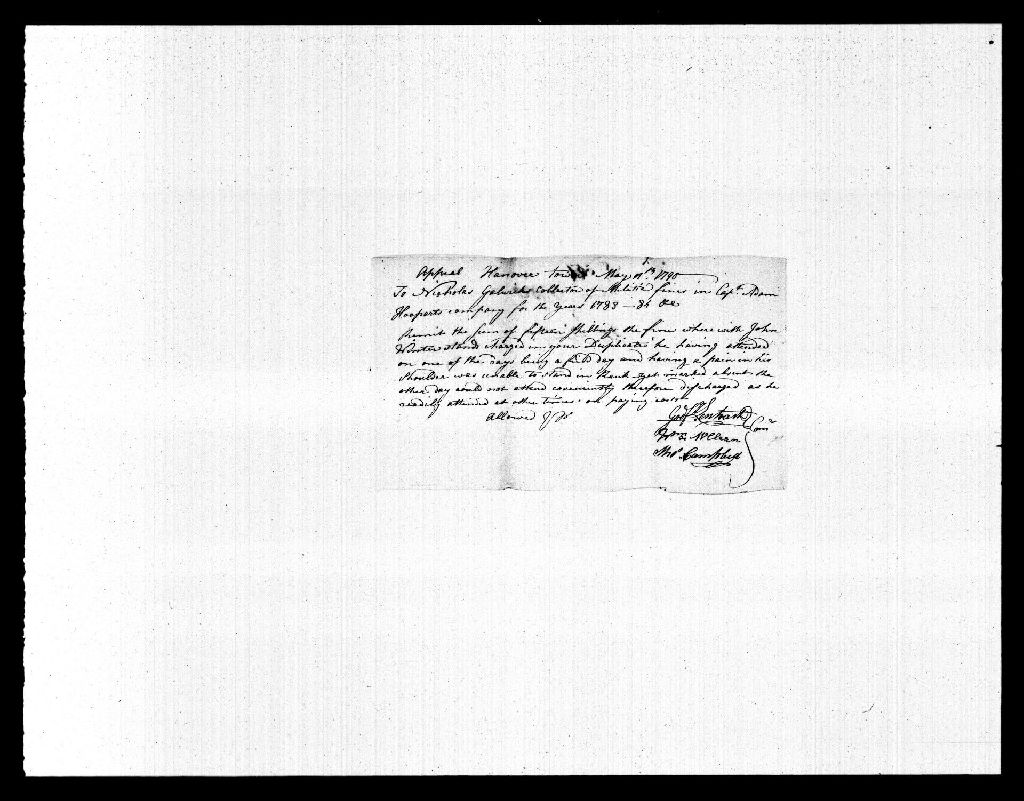 Appeal Hanover May 11th 1790
To Nicholas Collector of Militia fines in Capt. Adam
company for the Years 1785 - 86 &c
Remit the sum of fifteen Shillings the fine wherewith John
stands charged in your Duplicate he having attended
on one of the days being a field day and having a pain in his
Shoulder was unable to stand in Rank yet about the
other day could not attend conveniently therefore discharged as he
readily attended at other times on paying costs
Allowed
McClean
Thos. Campbell